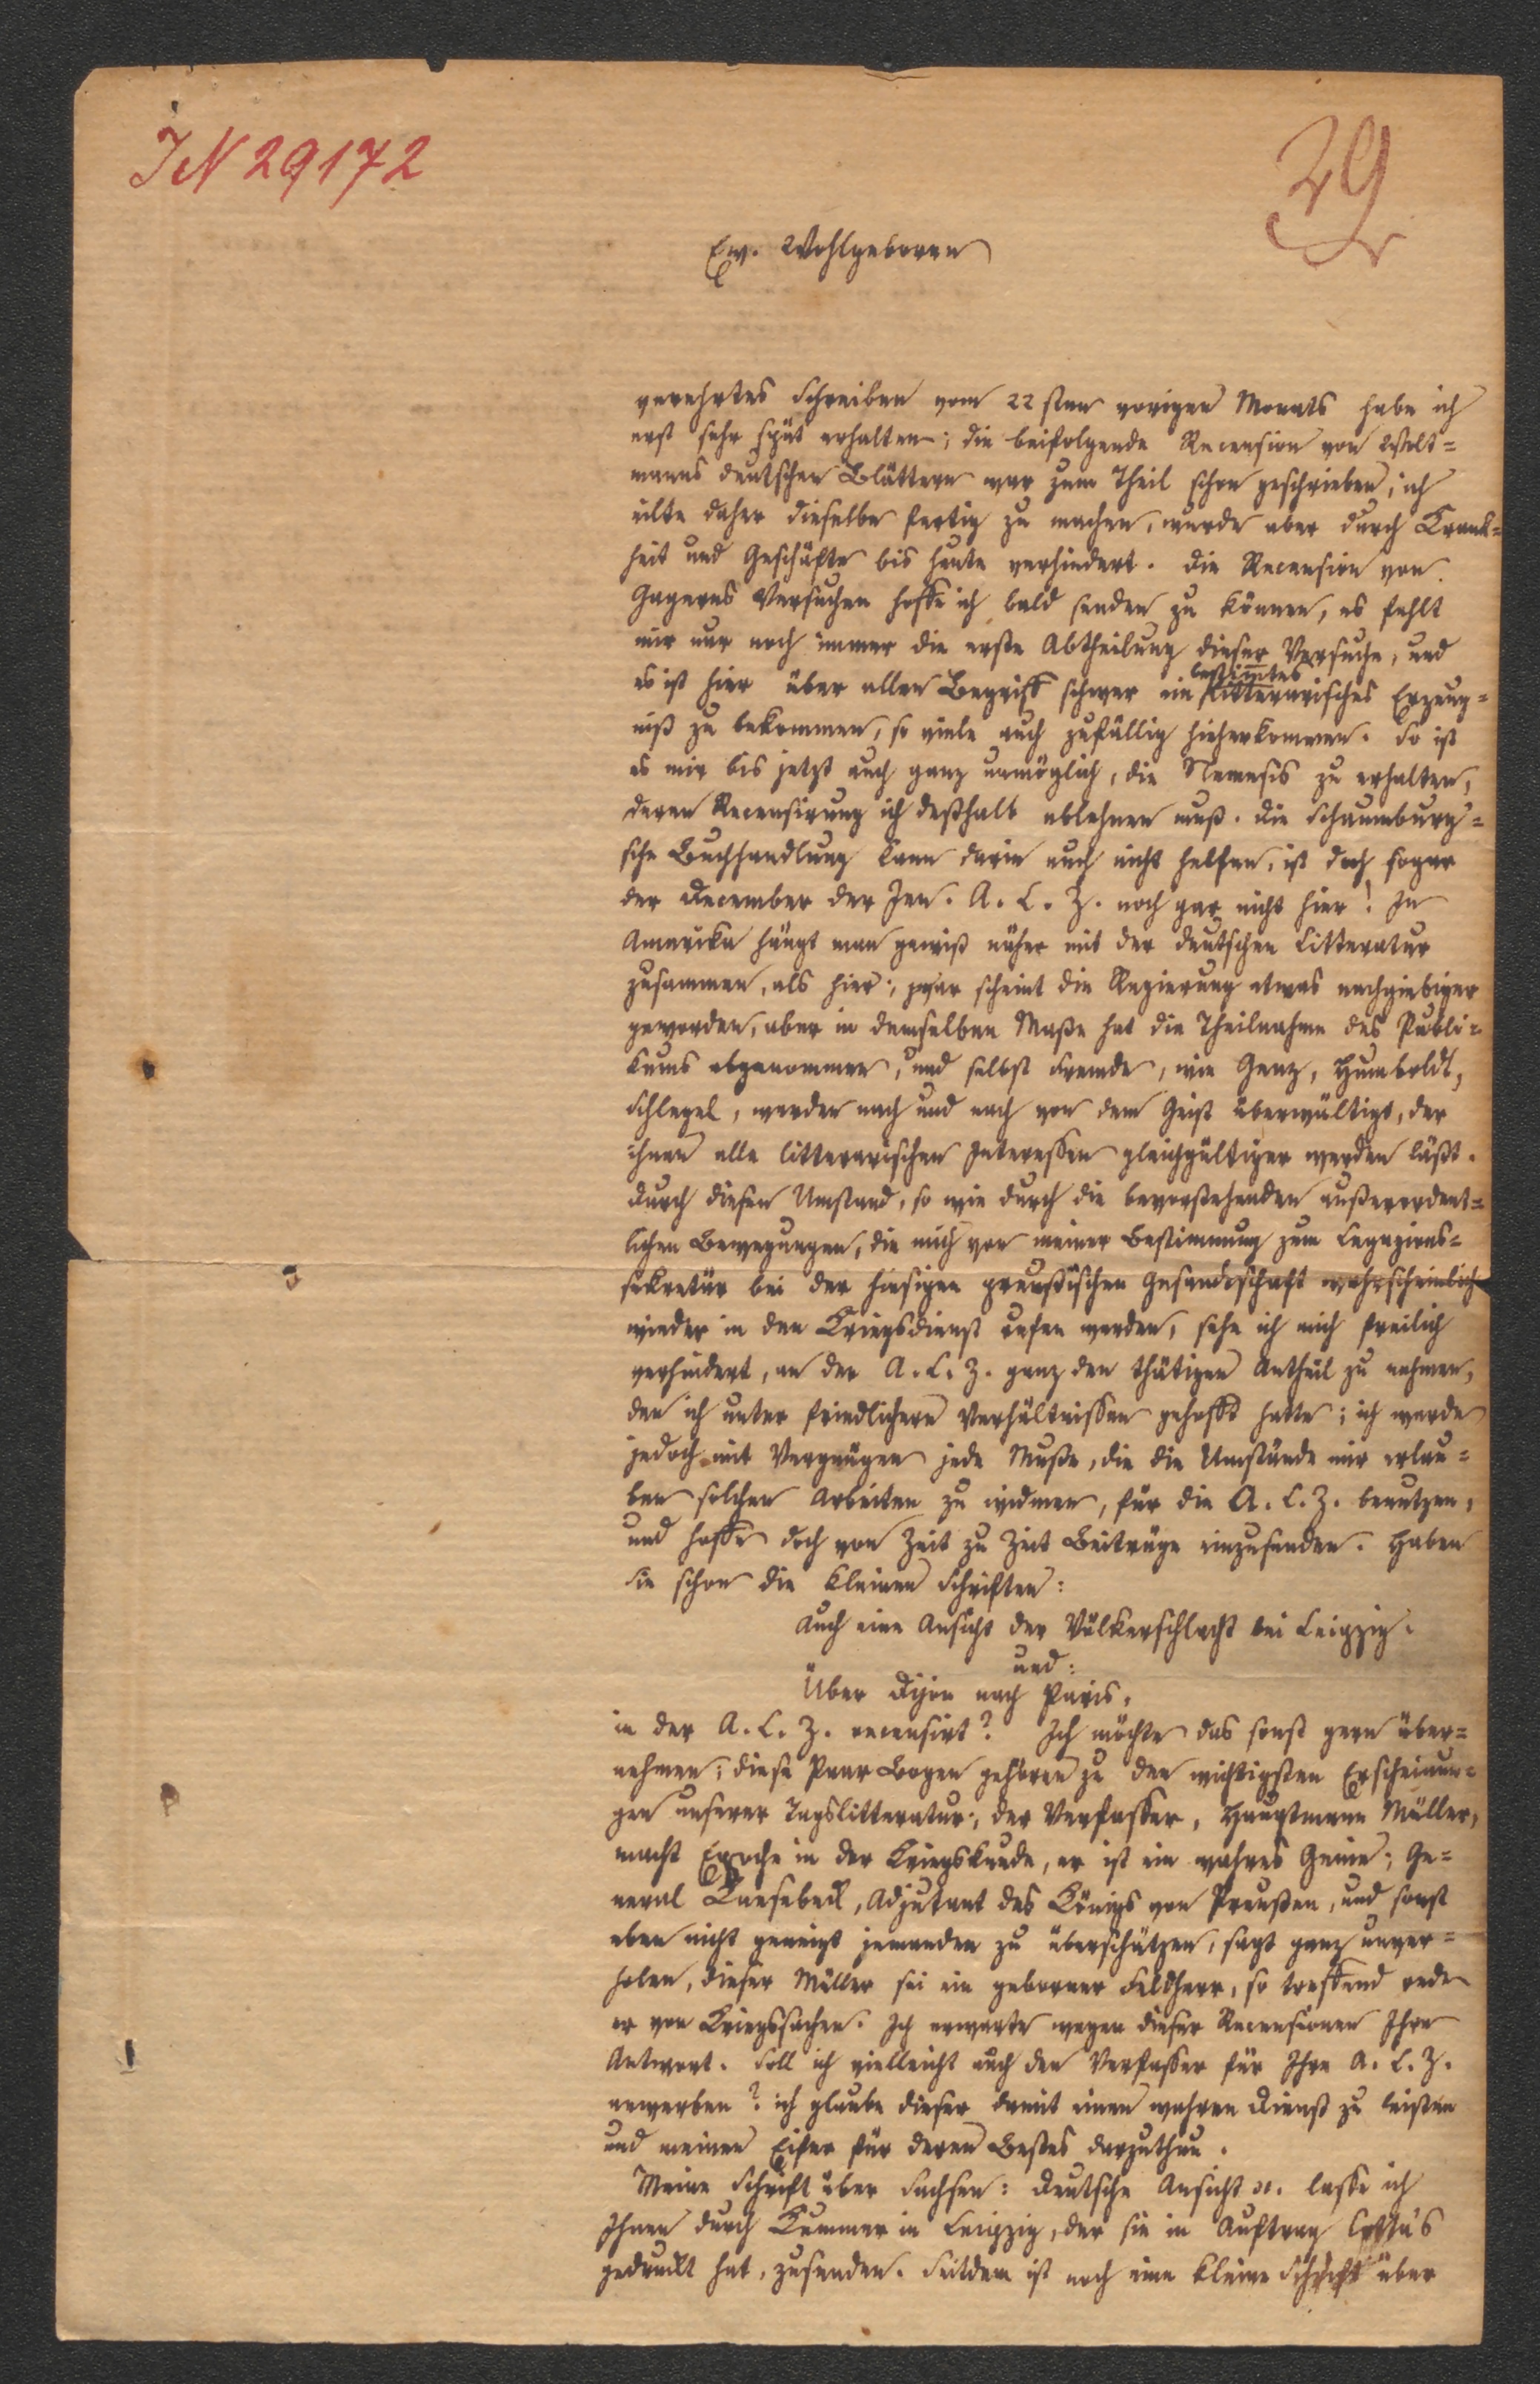 IN 29172
29
Ew. Wohlgeboren
verehrtes Schreiben vom 22sten vorigen Monats habe ich
erst sehr spät erhalten; die beifolgende Recension von Wolt=
manns deutschen Blättern war zum Theil schon geschrieben, ich
eilte daher dieselbe fertig zu machen, wurde aber durch Krank=
heit und Geschäfte bis heute verhindert. Die Recension von
Gagerns Versuchen hoffe ich bald senden zu können, es fehlt
mir nur noch immer die erste Abtheilung dieser Versuche, und
bestimmtes
es ist hier über allen Begriff schwer ein litterarisches Erzeug=
niß zu bekommen, so viele auch zufällig hieherkommen. So ist
es mir bis jetzt auch ganz unmöglich, die Nemesis zu erhalten,
deren Recensirung ich deßhalb ablehnen muß. Die Schaumburg=
sche Buchhandlung kann darin auch nicht helfen, ist doch sogar
der December der Jen. A. L. Z. noch gar nicht hier! In
Amerika hängt man gewiß näher mit der deutschen Litteratur
zusammen, als hier; zwar scheint die Regierung etwas nachgiebiger
geworden, aber in demselben Maße hat die Theilnahme des Publi=
kums abgenommen, und selbst Fremde, wie Genz, Humboldt,
Schlegel, werden nach und nach von dem Geist überwältigt, der
ihnen alle litterarischen Interessen gleichgültiger werden läßt.
Durch diesen Umstand, so wie durch die bevorstehenden außerordent=
lichen Bewegungen, die mich von meiner Bestimmung zum Legazions=
sekretär bei der hiesigen preußischen Gesandtschaft wahrscheinlich
wieder in den Kriegsdienst rufen werden, sehe ich mich freilich
verhindert, an der A. L. Z. ganz den thätigen Antheil zu nehmen,
den ich unter friedlichern Verhältnissen gehofft hatte; ich werde
jedoch mit Vergnügen jede Muße, die die Umstände mir erlau=
ben solchen Arbeiten zu widmen, für die A. L. Z. benutzen,
und hoffe doch von Zeit zu Zeit Beiträge einzusenden. Haben
Sie schon die kleinen Schriften:
Auch eine Ansicht der Völkerschlacht bei Leipzig.
und:
Über Dijon nach Paris,
in der A. L. Z. recensirt? Ich möchte das sonst gern über=
nehmen; diese Paar Bogen gehören zu den wichtigsten Erscheinun=
gen unserer Tagslitteratur; der Verfasser, Hauptmann Müller,
macht Epoche in der Kriegskunde, er ist ein wahres Genie; Ge=
neral Knesebeck, Adjutant des Königs von Preußen, und sonst
eben nicht geneigt jemanden zu überschätzen, sagt ganz unver=
holen, dieser Müller sei ein geborner Feldherr, so treffend rede
er von Kriegssachen. Ich erwarte wegen dieser Recensionen Ihre
Antwort. Soll ich vielleicht auch den Verfasser für Ihre A. L. Z.
anwerben? ich glaube dieser damit einen wahren Dienst zu leisten
und meinen Eifer für deren Bestes darzuthun.
Meine Schrift über Sachsen: Deutsche Ansicht ꝛc. lasse ich
Ihnen durch Kummer in Leipzig, der sie im Auftrag Cotta's
gedruckt hat, zusenden. Seitdem ist noch eine kleine Schrift über